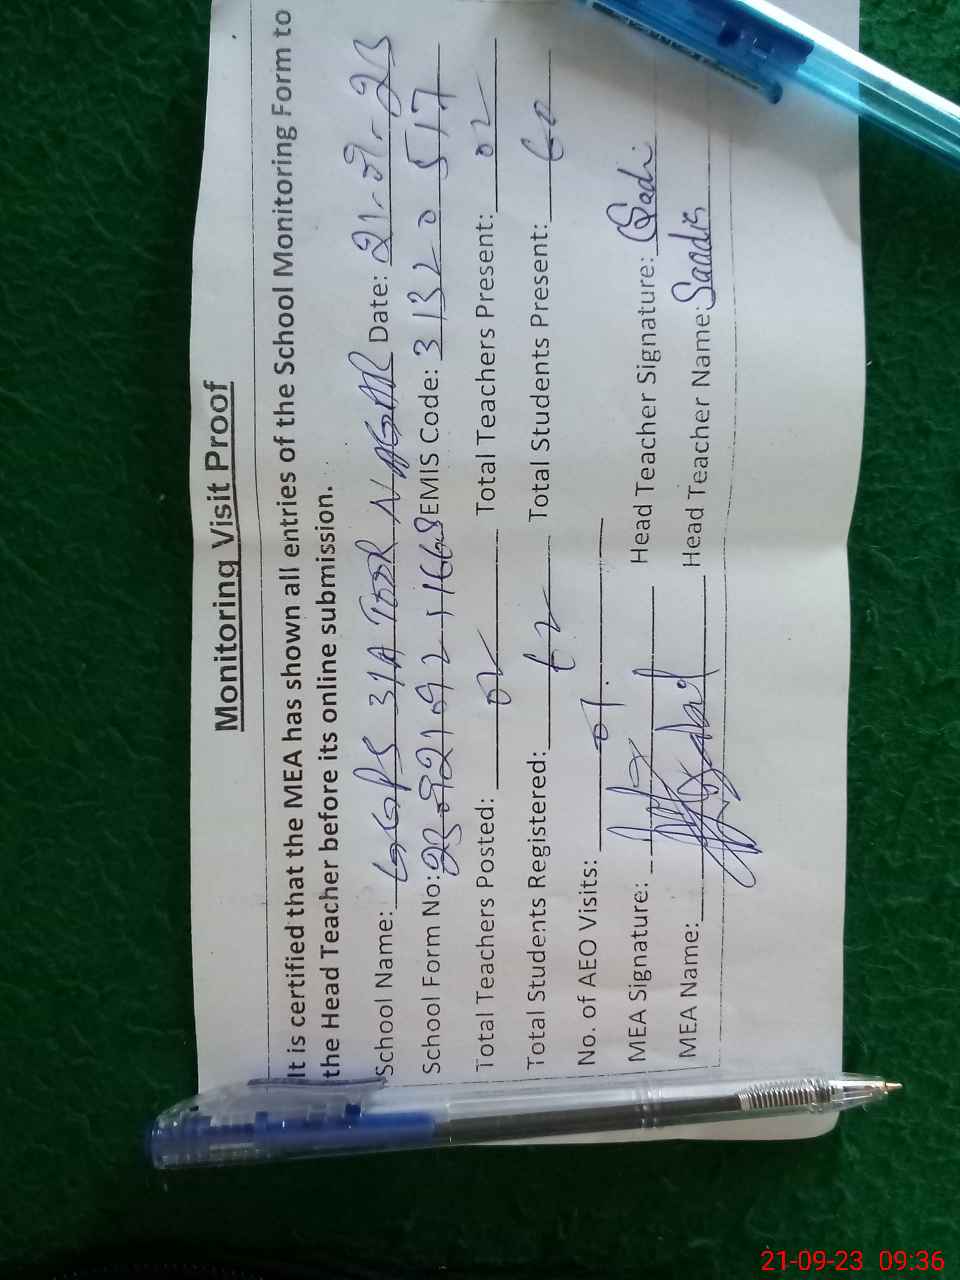 Monitoring Visit Proof
It is certified that the MEA has shown all entries of the School Monitoring Form to
the Head Teacher before its online submission.
School Name: GGPS 31A TOOR NAGAR Date: 21-09-23
School Form No: EMIS Code: 31320517
Total Teachers Posted: 02 Total Teachers Present: 02
Total Students Registered: 62 Total Students Present: 60
No. of AEO Visits: 01
MEA Signature: Head Teacher Signature: Sadi
MEA Name: Head Teacher Name:
21-09-23 09:36